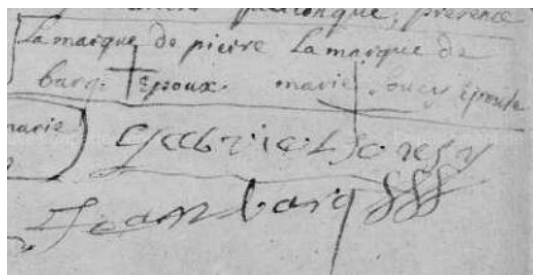 quelconque, presence
la marque de pierre la marque de
barg. époux. marie soucy épouse
marie
Gabriel soucy
Jean barg